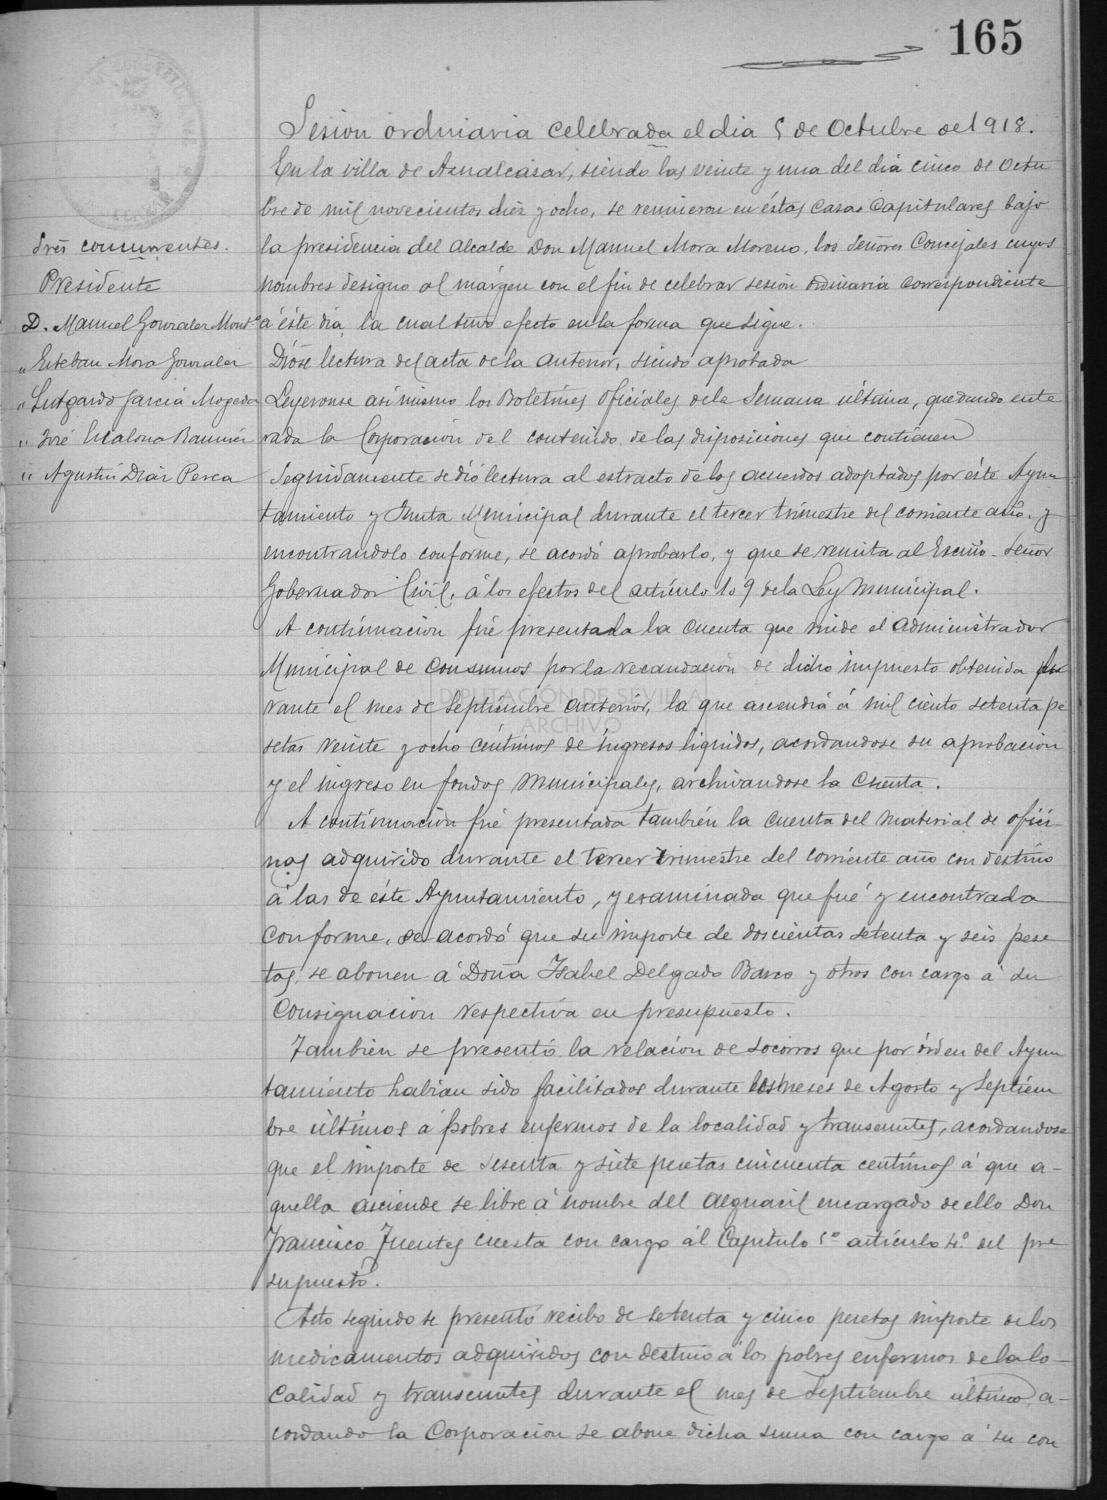 165
Sesion ordinaria celebrada el dia 5 de Octubre de 1918.
En la villa de Aznalcásar, siendo las veinte y una del dia cinco de Octu
bre de mil novecientos diez y ocho, se reunieron en éstas Casas Capitulares bajo
la presidencia del Alcalde Don Manuel Mora Moreno, los Señores Concejales cuyos
nombres designo al márgen con el fin de celebrar sesion ordinaria correspondiente
á éste dia, la cual tuvo efecto en la forma que sigue.
Dióse lectura del acta de la anterior, siendo aprobada
Leyeronse asi mismo los Boletines Oficiales de la Semana última, quedando ente
rada la Corporacion del contenido de las disposiciones que contienen
Seguidamente se dió lectura al estracto de los acuerdos adoptados por éste Ayun
tamiento y Junta Municipal durante el tercer trimestre del corriente año, y
encontrandolo conforme, se acordó aprobarlo, y que se remita al Escmo. Señor
Gobernador Civil, á los efectos del artículo 109 de la Ley Municipal.
A continuacion fué presentada la cuenta que rinde el administrador
Municipal de consumos por la recaudacion de dicho impuesto obtenida du
rante el mes de Septiembre anterior, la que ascendió á mil ciento setenta pe
setas veinte y ocho céntimos de ingresos liquidos, acordandose su aprobacion
y el ingreso en fondos Municipales, archivandose la Cuenta.
A continuacion fué presentada también la cuenta del material de ofici
nas adquirido durante el tercer trimestre del corriente año con destino
á las de éste Ayuntamiento, y examinada que fué y encontrada
conforme, se acordó que su importe de doscientas setenta y seis pese
tas, se abonen á Doña Isabel Delgado Barco y otros con cargo á su
Consignacion respectiva en presupuesto.
También se presentó la relacion de socorros que por órden del Ayun
tamiento habian sido facilitados durante los meses de Agosto y Septiem
bre últimos á pobres enfermos de la localidad y transeuntes, acordandose
que el importe de sesenta y siete pesetas cincuenta centimos á que a-
quella asciende se libre á nombre del Alguacil encargado de ello Don
Francisco Fuentes Cuesta con cargo al Capitulo 5º artículo 4º del pre
supuesto.
Acto seguido se presentó recibo de setenta y cinco pesetas importe de los
medicamentos adquiridos con destino á los pobres enfermos de la lo-
calidad y transeuntes durante el mes de Septiembre último, a-
cordando la Corporacion se abone dicha suma con cargo á su con
Sres concurrentes.
Presidente
D. Manuel Gonzalez Mont
" Esteban Mora Gonzalez
" Lutgardo Garcia Mogeda
" José Escalona Ramirez
" Agustin Diaz Perea
DIPUTACIÓN DE SEVILLA
ARCHIVO